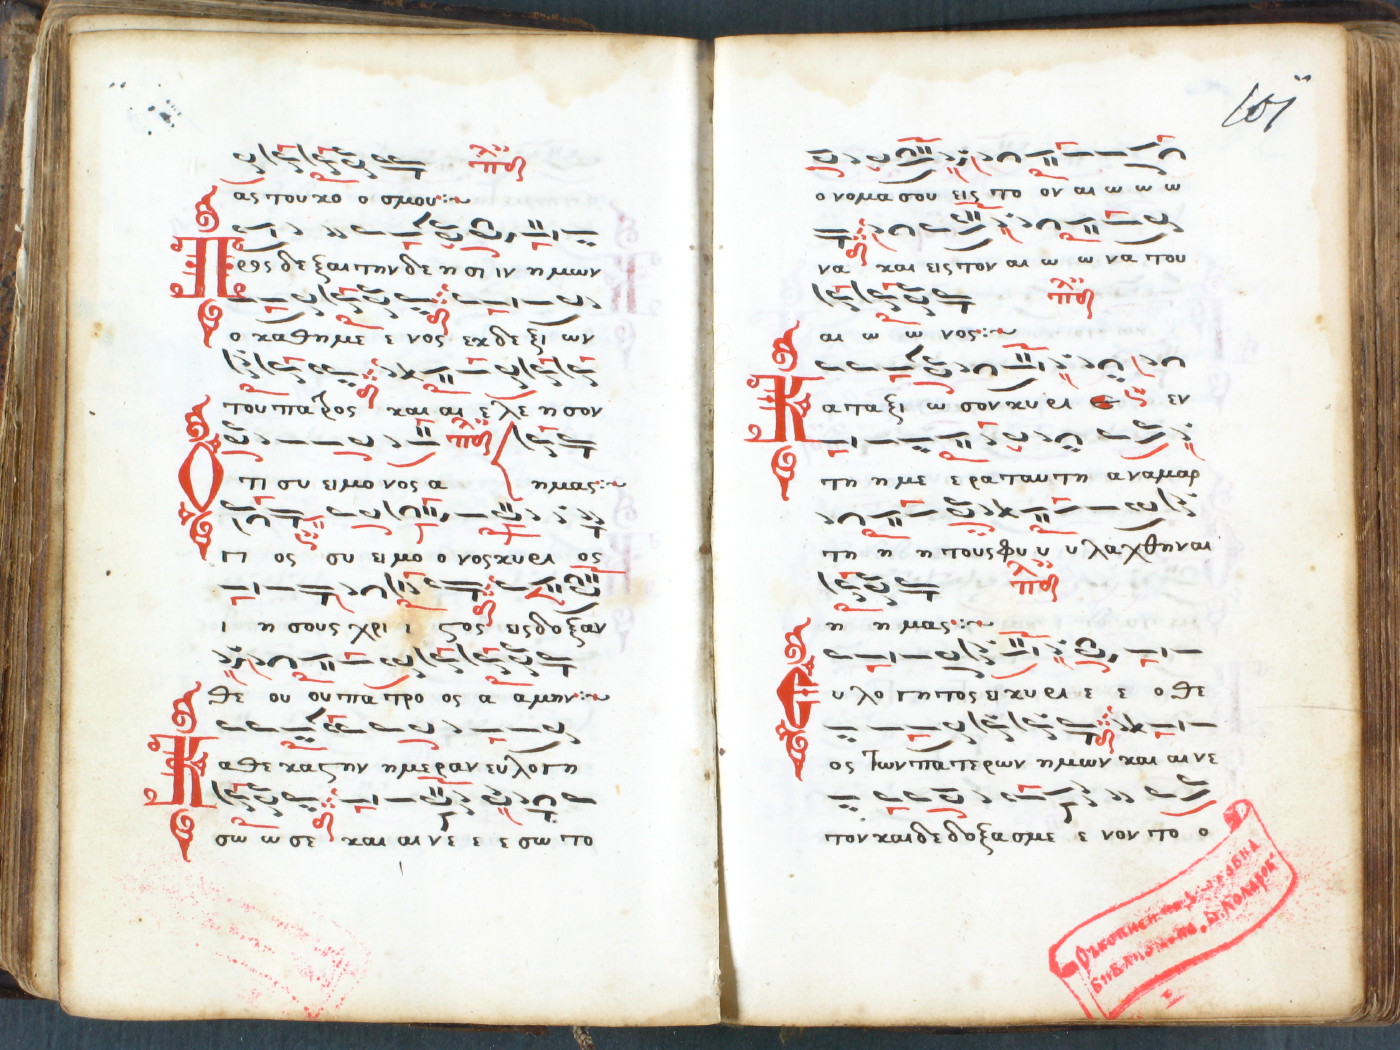 ας του κο ο σμου:~
Προς δε ξαι την δε η σι ιν η μων
ο καθη με ε νος εκ δε ξι ων
του πατρος και αι ε λε η σον
Ο τι συ ει μο νος α ημας:~
γι ος συ ει μο ο νος κυρι ος
ι η σους χρι ι ςος εις δο ξαν
θε ου ου πα προ ος α αμην:~
Καθε κα ςην ημεραν ευ λο γη
σω ω σε και αι νε ε ε σω το
101
ο νομα σου εις το ον αι ω ω ω
να και εις τον αι ω ω να του
αι ω ω νος:~
Κατα ξι ω σον κυρι ε εν
τη η με ε ρα ταυτη αναμαρ
τη η η τους φυ υ υ λα χθηναι
η η μας:~
Ευ λο γη τος ει κυρι ε ε ο θε
ος των πατερων ημων και αι νε
τον και δε δο ξα σμε ε νον το ο